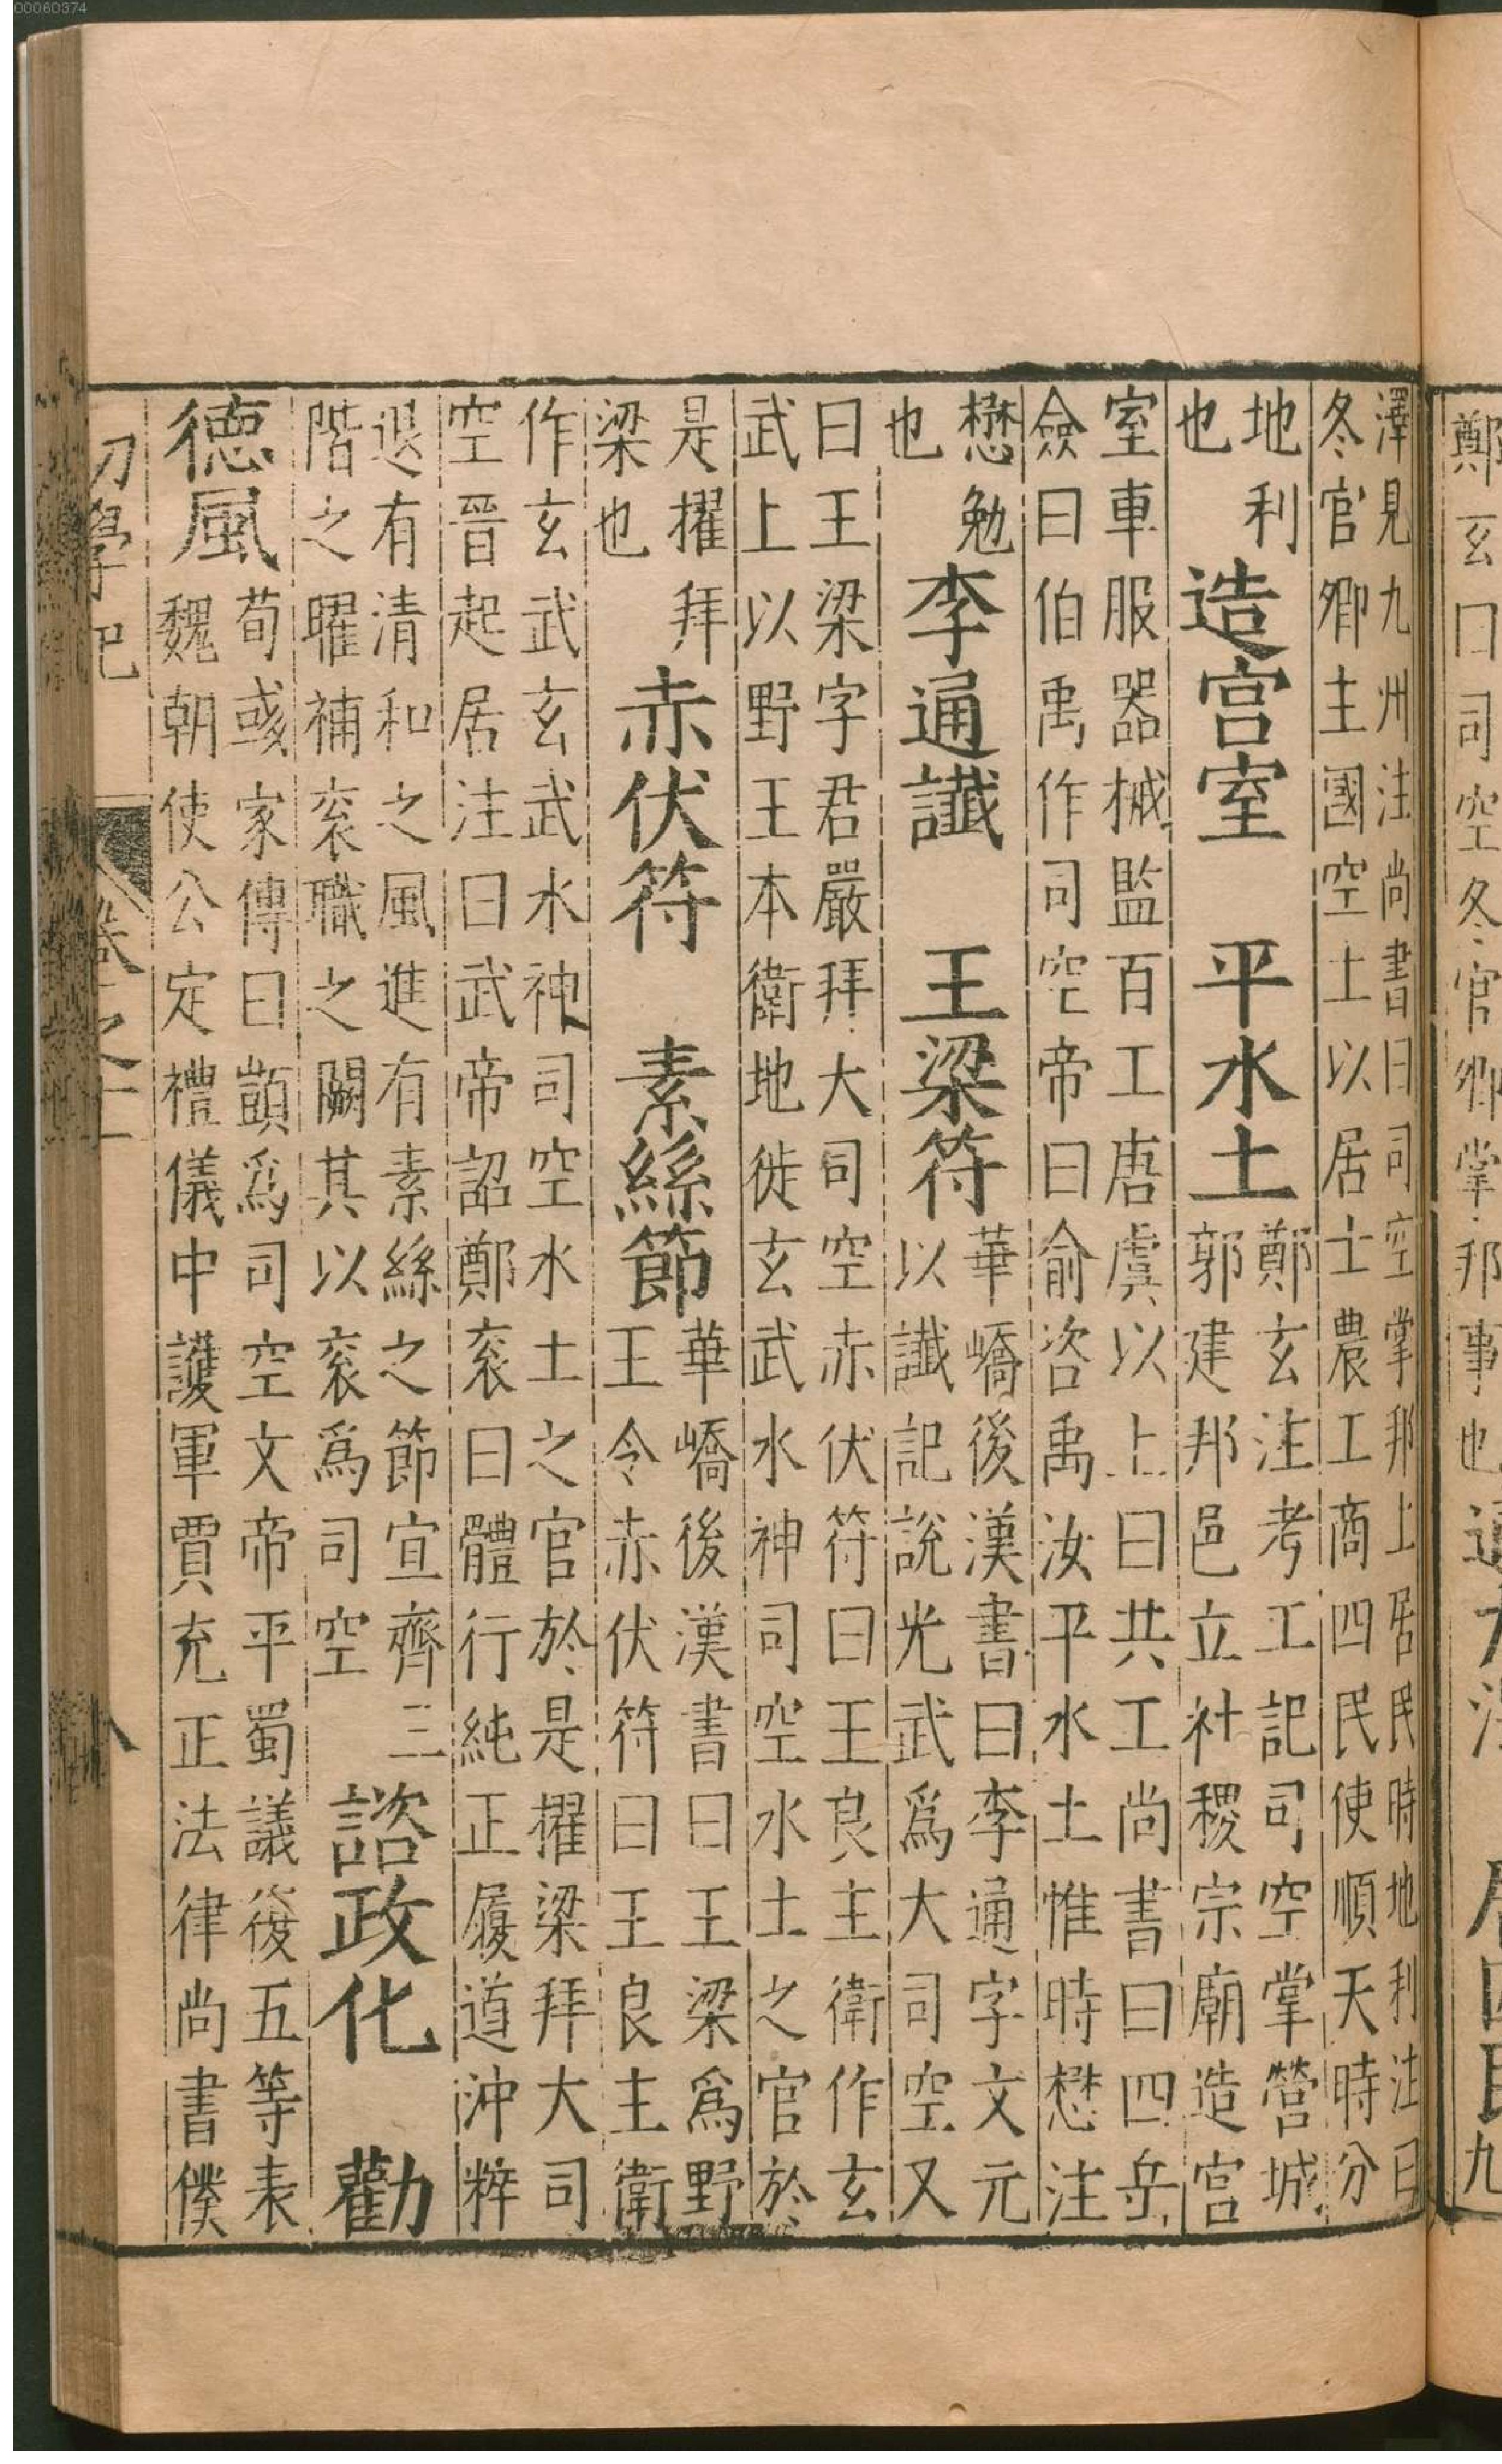 鄭玄曰司空冬官卿掌邦事也
澤見九州注尚書曰司空掌邦土居民時地利注曰
冬官卿主國空土以居士農工商四民使順天時分
地利
也
造宮室　平水土
鄭玄注考工記司空掌營城
郭建邦邑立社稷宗廟造宮
室車服器械監百工唐虞以上曰共工尚書曰四岳
僉曰伯禹作司空帝曰俞咨禹汝平水土惟時懋注
懋勉
也
李通讖　王梁符
華嶠後漢書曰李通字文元
以讖記說光武爲大司空又
曰王梁字君嚴拜大司空赤伏符曰王良主衛作玄
武上以野王本衛地徙玄武水神司空水土之官於
是擢拜
梁也
赤伏符　素絲節
華嶠後漢書曰王梁爲野
王令赤伏符曰王良主衛
作玄武玄武水神司空水土之官於是擢梁拜大司
空晉起居注曰武帝詔鄭袤曰體行純正履道沖粹
退有清和之風進有素絲之節宣齊三
階之曜補袞職之闕其以袤爲司空
諮政化　勸
德風
荀彧家傳曰顗爲司空文帝平蜀議復五等表
魏朝使公定禮儀中護軍賈充正法律尚書僕
初學記　卷之十一　八
00060374